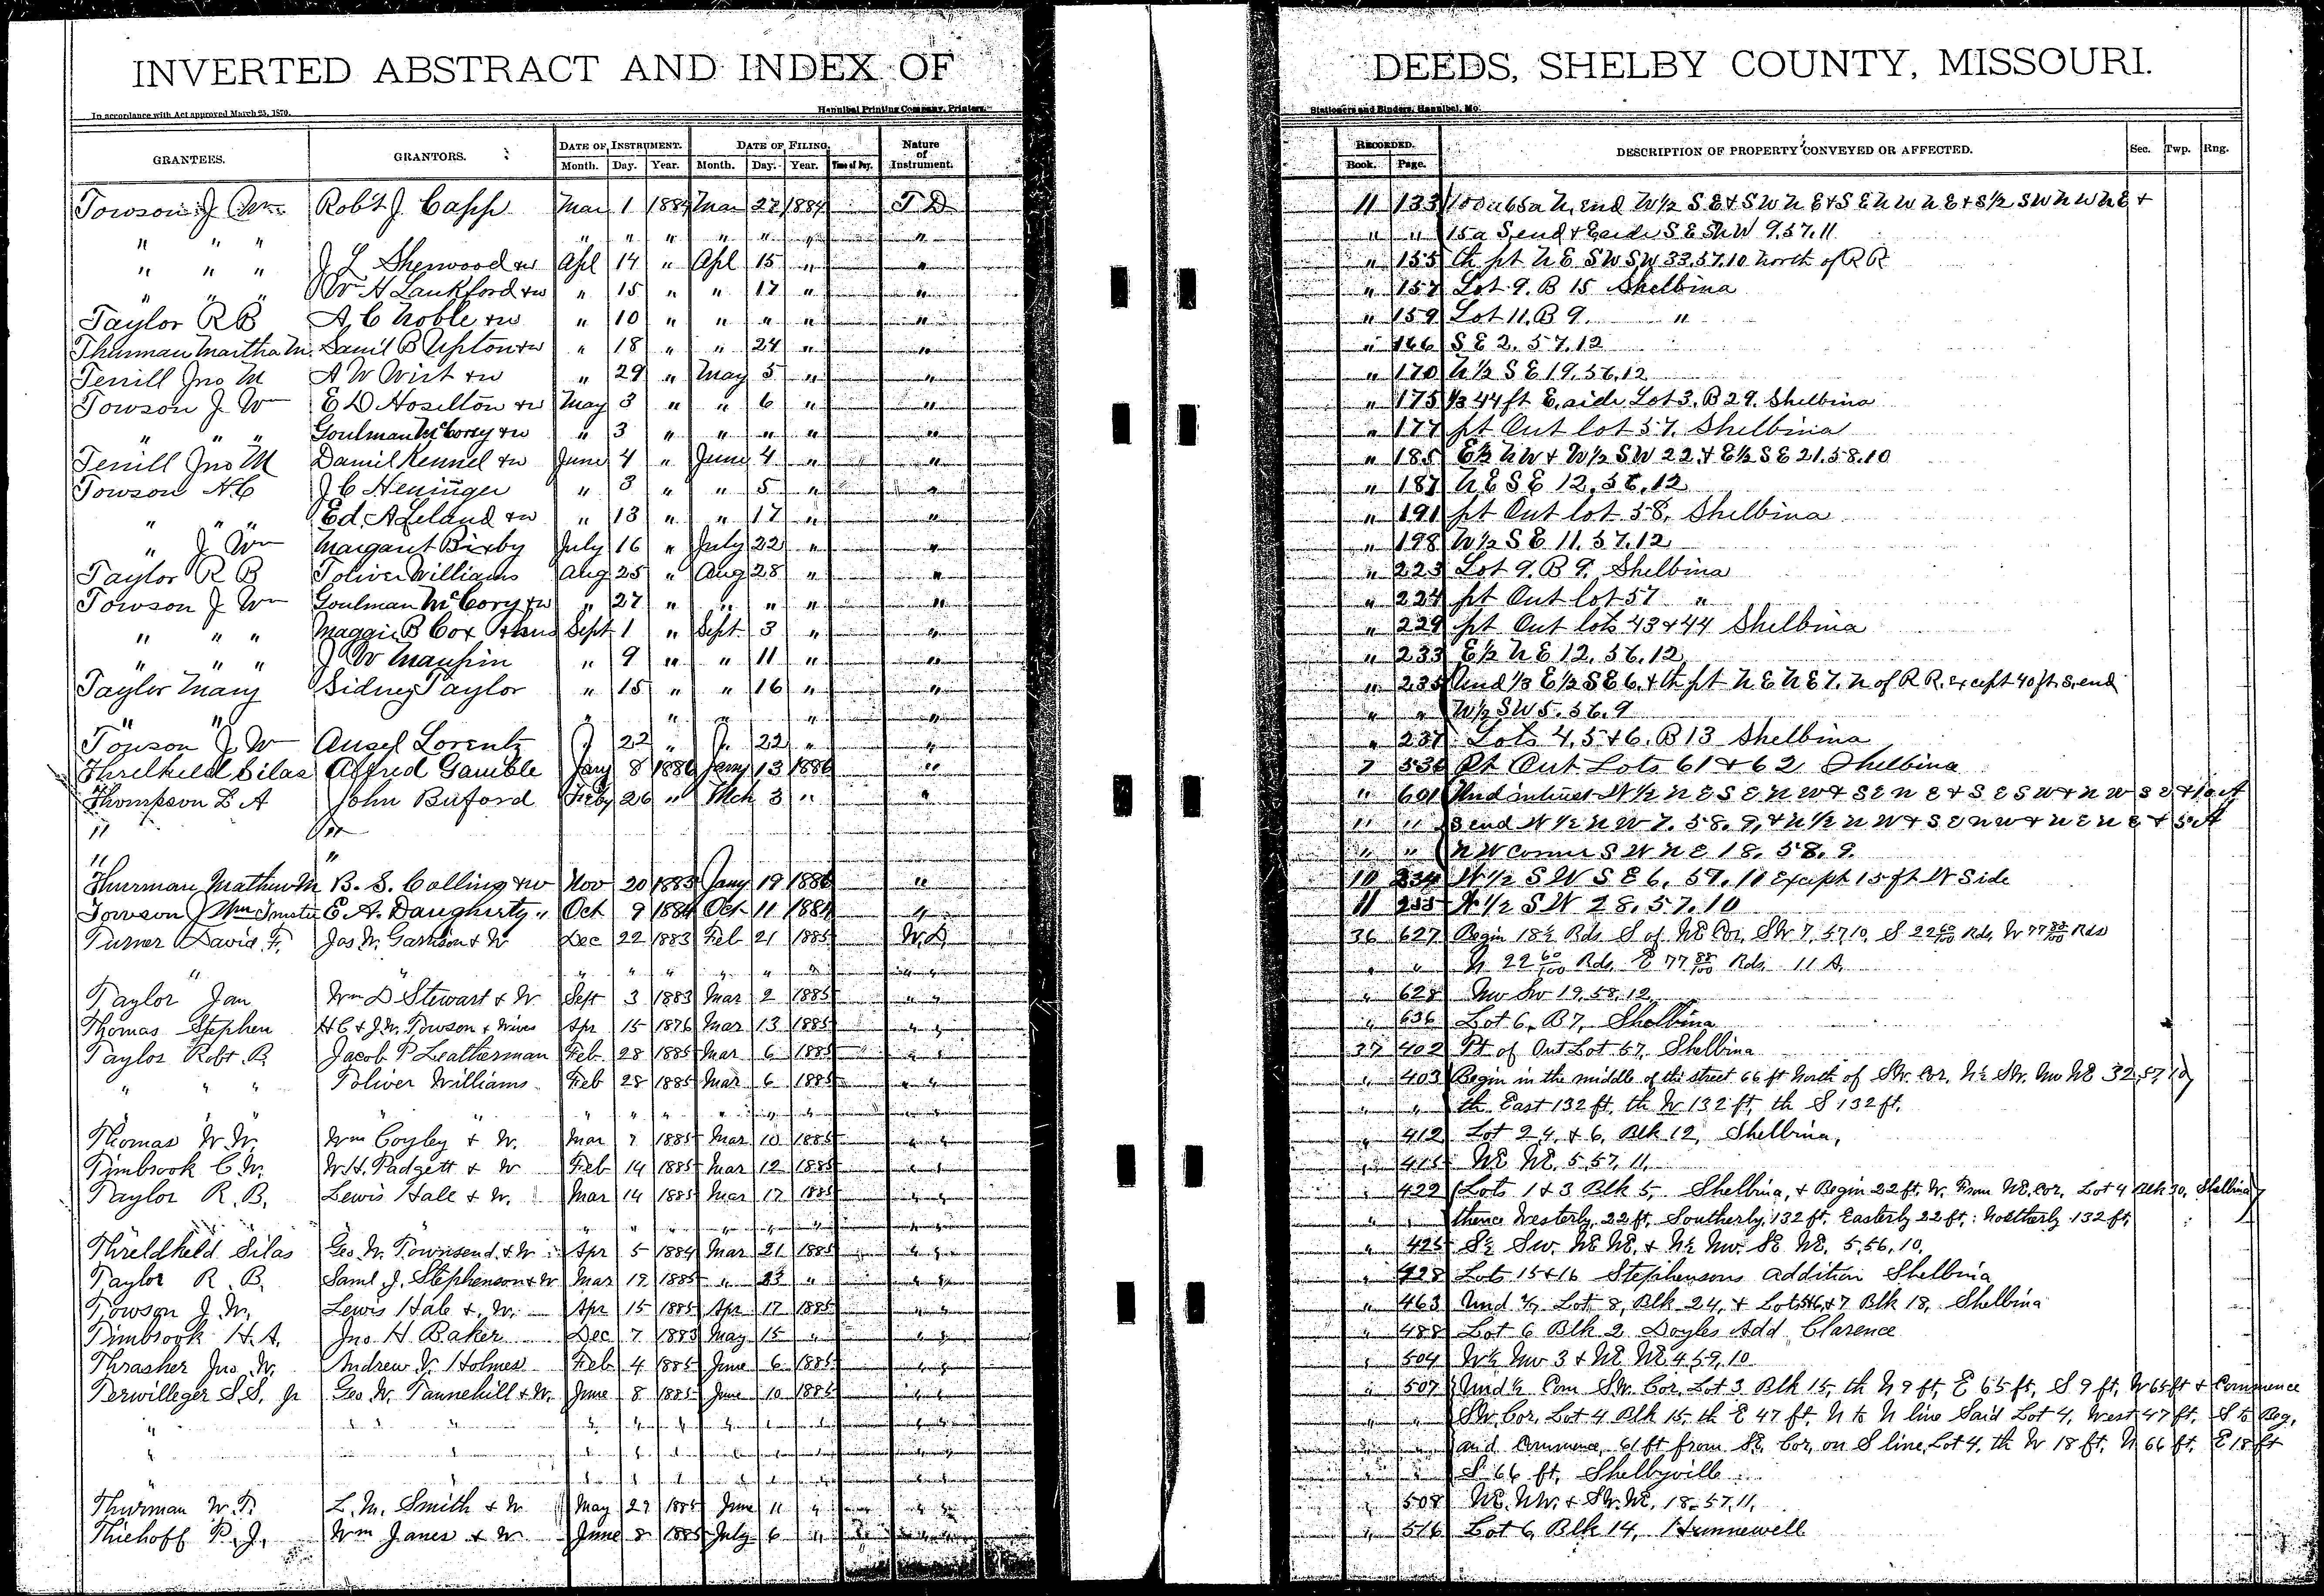 INVERTED ABSTRACT AND INDEX OF DEEDS, SHELBY COUNTY, MISSOURI.
In accordance with Act approved March 25, 1870. Hannibal Printing Company, Printers, Stationers and Binders, Hannibal, Mo.
GRANTEES. GRANTORS. DATE OF INSTRUMENT. DATE OF FILING. Nature of Instrument. RECORDED. DESCRIPTION OF PROPERTY CONVEYED OR AFFECTED. Sec. Twp. Rng.
Month. Day. Year. Month. Day. Year. Time of Day. Book. Page.
Towson J Wm Robt J Capp Mar 1 1884 Mar 27 1884 T D 11 133 N, end W½ S E + S W N E + S E N W N E + S½ S W N W N E +
" " " " " " " " " " " " 15a S, end + E side S E N W 9.57.11
" " " J L Sherwood + w Apl 14 " Apl 15 " " " 155 th pt N E S W S W 33.57.10 North of R R
" " " W H Lankford + w " 15 " " 17 " " " 157 Lot 9. B 15 Shelbina
Taylor R B A, C Noble + w " 10 " " " " " " 159 Lot 11. B 9. "
Thurman Martha M. Saml B Upton + w " 18 " " 24 " " " 166 S E 2. 57.12
Terrill Jno M A W Wirt + w " 29 " May 5 " " " 170 N½ S E 19.56.12
Towson J Wm E D Hoselton + w May 3 " " 6 " " " 175 44 ft E, side Lot 3. B 29. Shelbina
" " " Goulman McCorey + w " 3 " " " " " " 177 pt Out lot 57. Shelbina
Terrill Jno M Daniel Kennel + w June 4 " June 4 " " " 185 E½ N W + W½ S W 22. + E½ S E 21.58.10
Towson H C J C Heninger " 3 " " 5 " " " 187 N E S E 12.56.12
" " " Ed. A Leland + w " 13 " " 17 " " " 191 pt Out lot 58, Shelbina
" J Wm Margaret Bixby July 16 " July 22 " " " 198 W½ S E 11.57.12
Taylor R B Toliver Williams Aug 25 " Aug 28 " " " 223 Lot 9. B 9. Shelbina
Towson J Wm Goulman McCory + w " 27 " " " " " " 224 pt Out lot 57 "
" " " Maggie B Cox + hus Sept 1 " Sept 3 " " " 229 pt Out lots 43 + 44 Shelbina
" " " J W Maupin " 9 " " 11 " " " 233 E½ N E 12.56.12
Taylor Mary Sidney Taylor " 15 " " 16 " " " 235 Und ⅓ E½ S E 6. + th pt N E N E 7. N of R R. except 40 ft S, end
" " " " " " " W½ S W 5.56.9
Towson J Wm Ansel Lorentz " 22 " " 22 " " " 237 Lots 4,5 + 6. B 13 Shelbina
Threlkeld Silas Alfred Gamble Jany 8 1886 Jany 13 1886 " 7 536 Pt Out Lots 61 + 62 Shelbina
Thompson L A John Buford Feby 26 " Mch 3 " " " 601 Und interest W½ N E S E N W + S E N E + S E S W + N W S E + 10 A
" " " " S end W½ N W 7. 58. 9, + N½ N W + S E N W + N E N E + 5 A
" " " " N W corner S W N E 18. 58. 9.
Thurman Mathew M B. S. Colling + w Nov 20 1885 Jany 19 1886 " 10 234 W½ S W S E 6. 57. 11 Except 15 ft W Side
Towson J Wm Trustee E A. Daugherty " Oct 9 1884 Oct 11 1884 " 11 255 W½ S W 28.57.10
Turner David F. Jas W. Garrison + W Dec 22 1883 Feb 21 1885 W. D. 36 627 Begin 18½ Rds S of NE Cor. SW 7,57,10, S 22 60/100 Rds, W 77 88/100 Rds
" " " " " " " " " " N 22 60/100 Rds, E 77 88/100 Rds, 11 A.
Taylor Jan Wm D Stewart + W Sept 3 1883 Mar 2 1885 " " " 628 NW SW 19,58,12
Thomas Stephen H C + J. W. Towson + Wives Apr 15 1876 Mar 13 1885 " " " 636 Lot 6, B 7, Shelbina
Taylor Robt B. Jacob P Leatherman Feb 28 1885 Mar 6 1885 " " 37 402 Pt of Out Lot 57, Shelbina
" " " Toliver Williams Feb 28 1885 Mar 6 1885 " " " 403 Begin in the middle of the street 66 ft North of SW. Cor. N½ SW. NW NE 32,57,10
" " " " " " " " " " " th East 132 ft, th W 132 ft, th S 132 ft.
Thomas W. W. Wm Coyley + W. Mar 7 1885 Mar 10 1885 " " " 412 Lot 2 4, + 6, Blk 12, Shelbina,
Timbrook C. W. W. H. Padgett + W Feb 14 1885 Mar 12 1885 " " " 415 NE NE, 5,57,11,
Taylor R. B. Lewis Hale + W. Mar 14 1885 Mar 17 1885 " " " 422 Lots 1 + 3 Blk 5, Shelbina, + Begin 22 ft. W. From NE. Cor. Lot 4 Blk 30, Shelbina
" " " " " " " " " " thence Westerly 22 ft, Southerly, 132 ft, Easterly 22 ft, Northerly 132 ft,
Threldkeld Silas Geo. W. Townsend + W Apr 5 1884 Mar 21 1885 " " " 425 S½ SW. NE NE. + N½ NW. SE NE. 5,56,10,
Taylor R. B. Saml. J. Stephenson + W Mar 19 1885 " 23 " " " " 428 Lots 15 + 16 Stephensons Addition Shelbina
Towson J. W. Lewis Hale + W. Apr 15 1885 Apr 17 1885 " " " 463 Und Lot 8, Blk 24, + Lots 5+6,+7 Blk 18, Shelbina
Timbrook H. A. Jno H Baker Dec 7 1883 May 15 " " " " 488 Lot 6 Blk 2 Doyles Add Clarence
Thrasher Jno. W. Andrew J. Holmes Feb 4 1885 June 6 1885 " " " 504 W½ NW 3 + NE NE 4,59,10
Terwilleger S. S. Jr Geo. W. Tannehill + W. June 8 1885 June 10 1885 " " " 507 Und ½ Com SW. Cor. Lot 3 Blk 15, th N 9 ft, E 65 ft, S 9 ft, W 65 ft + Commence
" " " " " " " " " " " SW. Cor. Lot 4 Blk 15, th E 47 ft, N to N line Said Lot 4, West 47 ft, S to Beg,
" " " " " " " " " " and Commence 61 ft from SE, Cor, on S line, Lot 4, th W 18 ft, N 66 ft, E 18 ft
" " " " " " " " " " S 66 ft, Shelbyville
Thurman W. T. L. M. Smith + W May 29 1885 June 11 " " " " 508 NE. NW. + SW. NE. 18,57,11,
Thiehoff P. J. Wm Janes + W June 8 1885 July 6 " " " " 516 Lot 6, Blk 14, Hunnewell